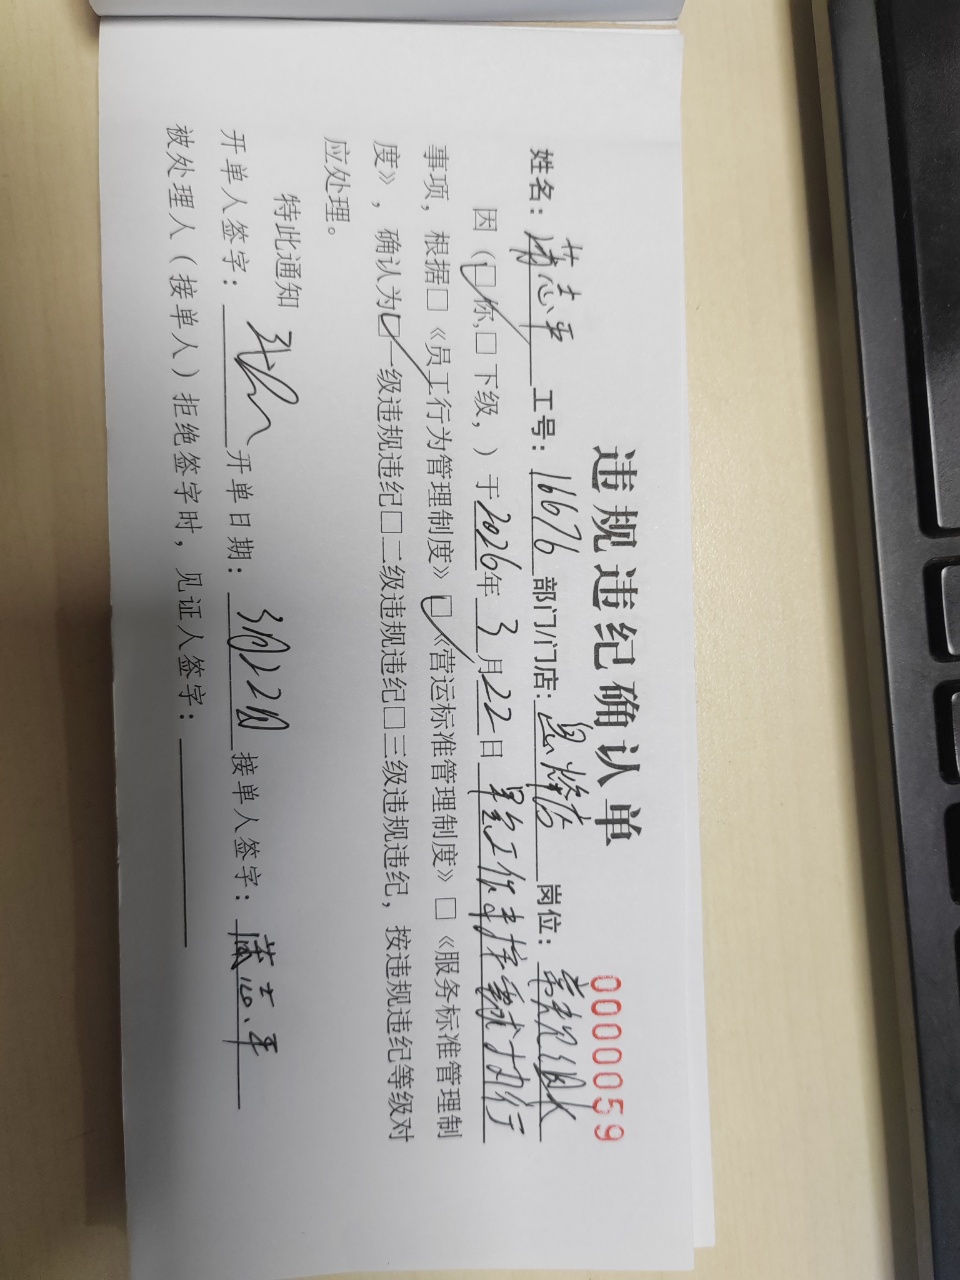 违规违纪确认单
0000059
姓名：蒲志平 工号：16676 部门/门店： 岗位：常规组长
因（☑你,□下级，）于2026年3月22日 工作未按要求执行
事项，根据□《员工行为管理制度》☑《营运标准管理制度》□《服务标准管理制
度》，确认为☑一级违规违纪□二级违规违纪□三级违规违纪，按违规违纪等级对
应处理。
特此通知
开单人签字： 开单日期：3月22日 接单人签字：蒲志平
被处理人（接单人）拒绝签字时，见证人签字：